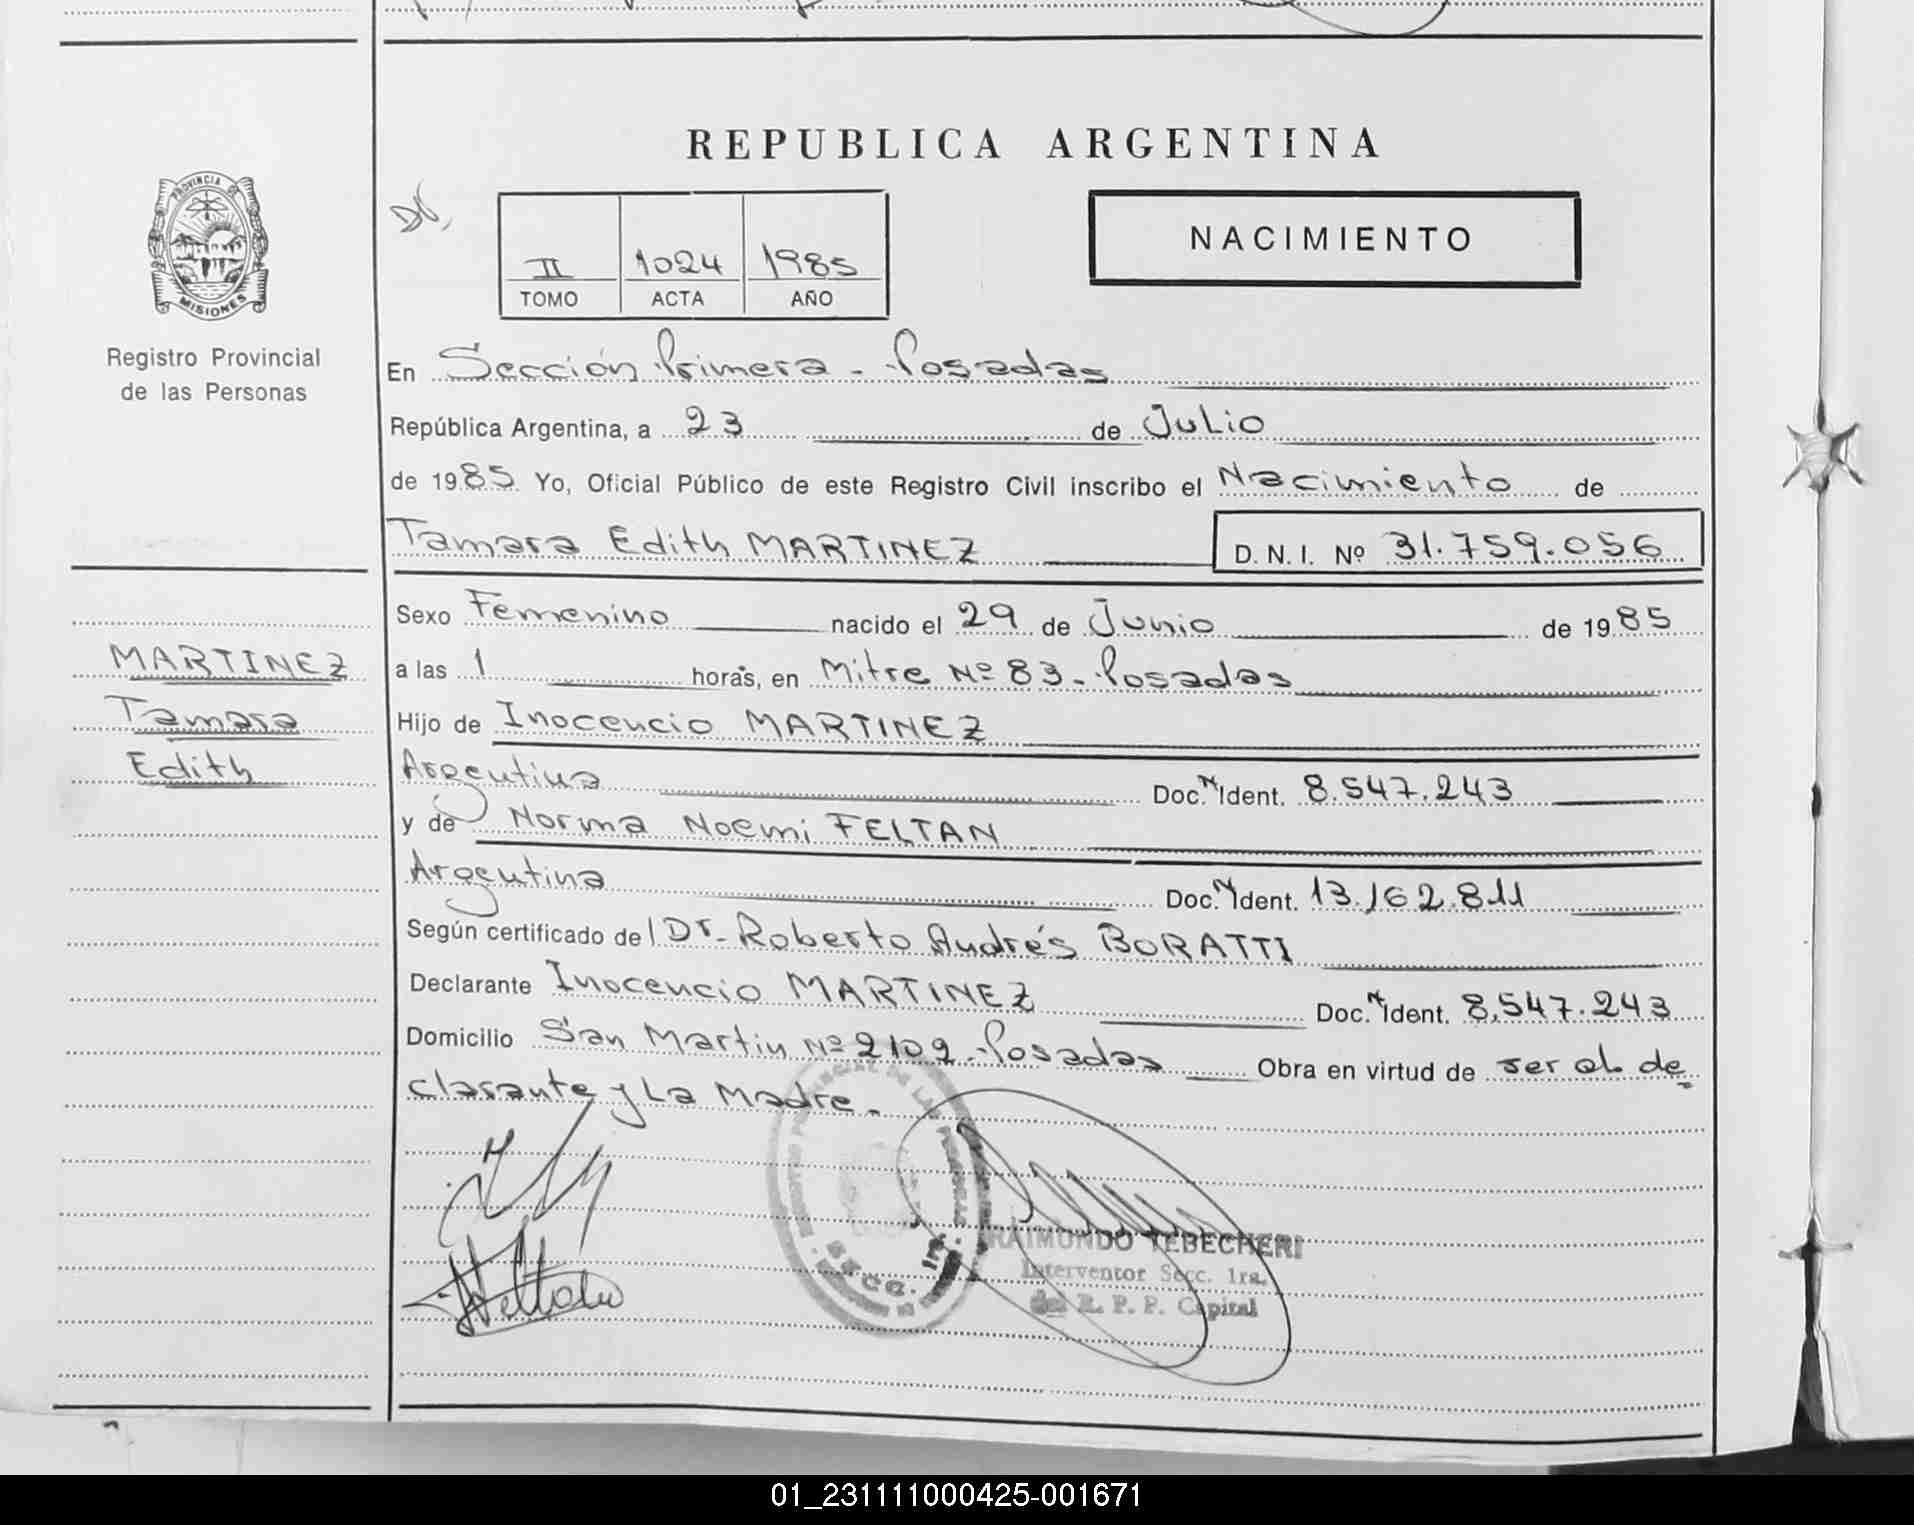 REPUBLICA ARGENTINA
PROVINCIA DE MISIONES
Registro Provincial
de las Personas
II 1024 1985
TOMO ACTA AÑO
NACIMIENTO
En Sección Primera - Posadas
República Argentina, a 23 de Julio
de 1985 Yo, Oficial Público de este Registro Civil inscribo el Nacimiento de
Tamara Edith MARTINEZ D. N. I. Nº 31.759.056
Sexo Femenino nacido el 29 de Junio de 1985
a las 1 horas, en Mitre Nº 83 - Posadas
Hijo de Inocencio MARTINEZ
Argentina Doc. N Ident. 8.547.243
y de Norma Noemi FELTAN
Argentina Doc. N Ident. 13.162.811
Según certificado del Dr. Roberto Andrés BORATTI
Declarante Inocencio MARTINEZ Doc. N Ident. 8.547.243
Domicilio San Martin Nº 2109 - Posadas Obra en virtud de ser el de=
clarante y La Madre.
MARTINEZ
Tamara
Edith
RAIMUNDO TEBECHERI
Interventor Secc. 1ra.
R. P. P. Capital
01_231111000425-001671